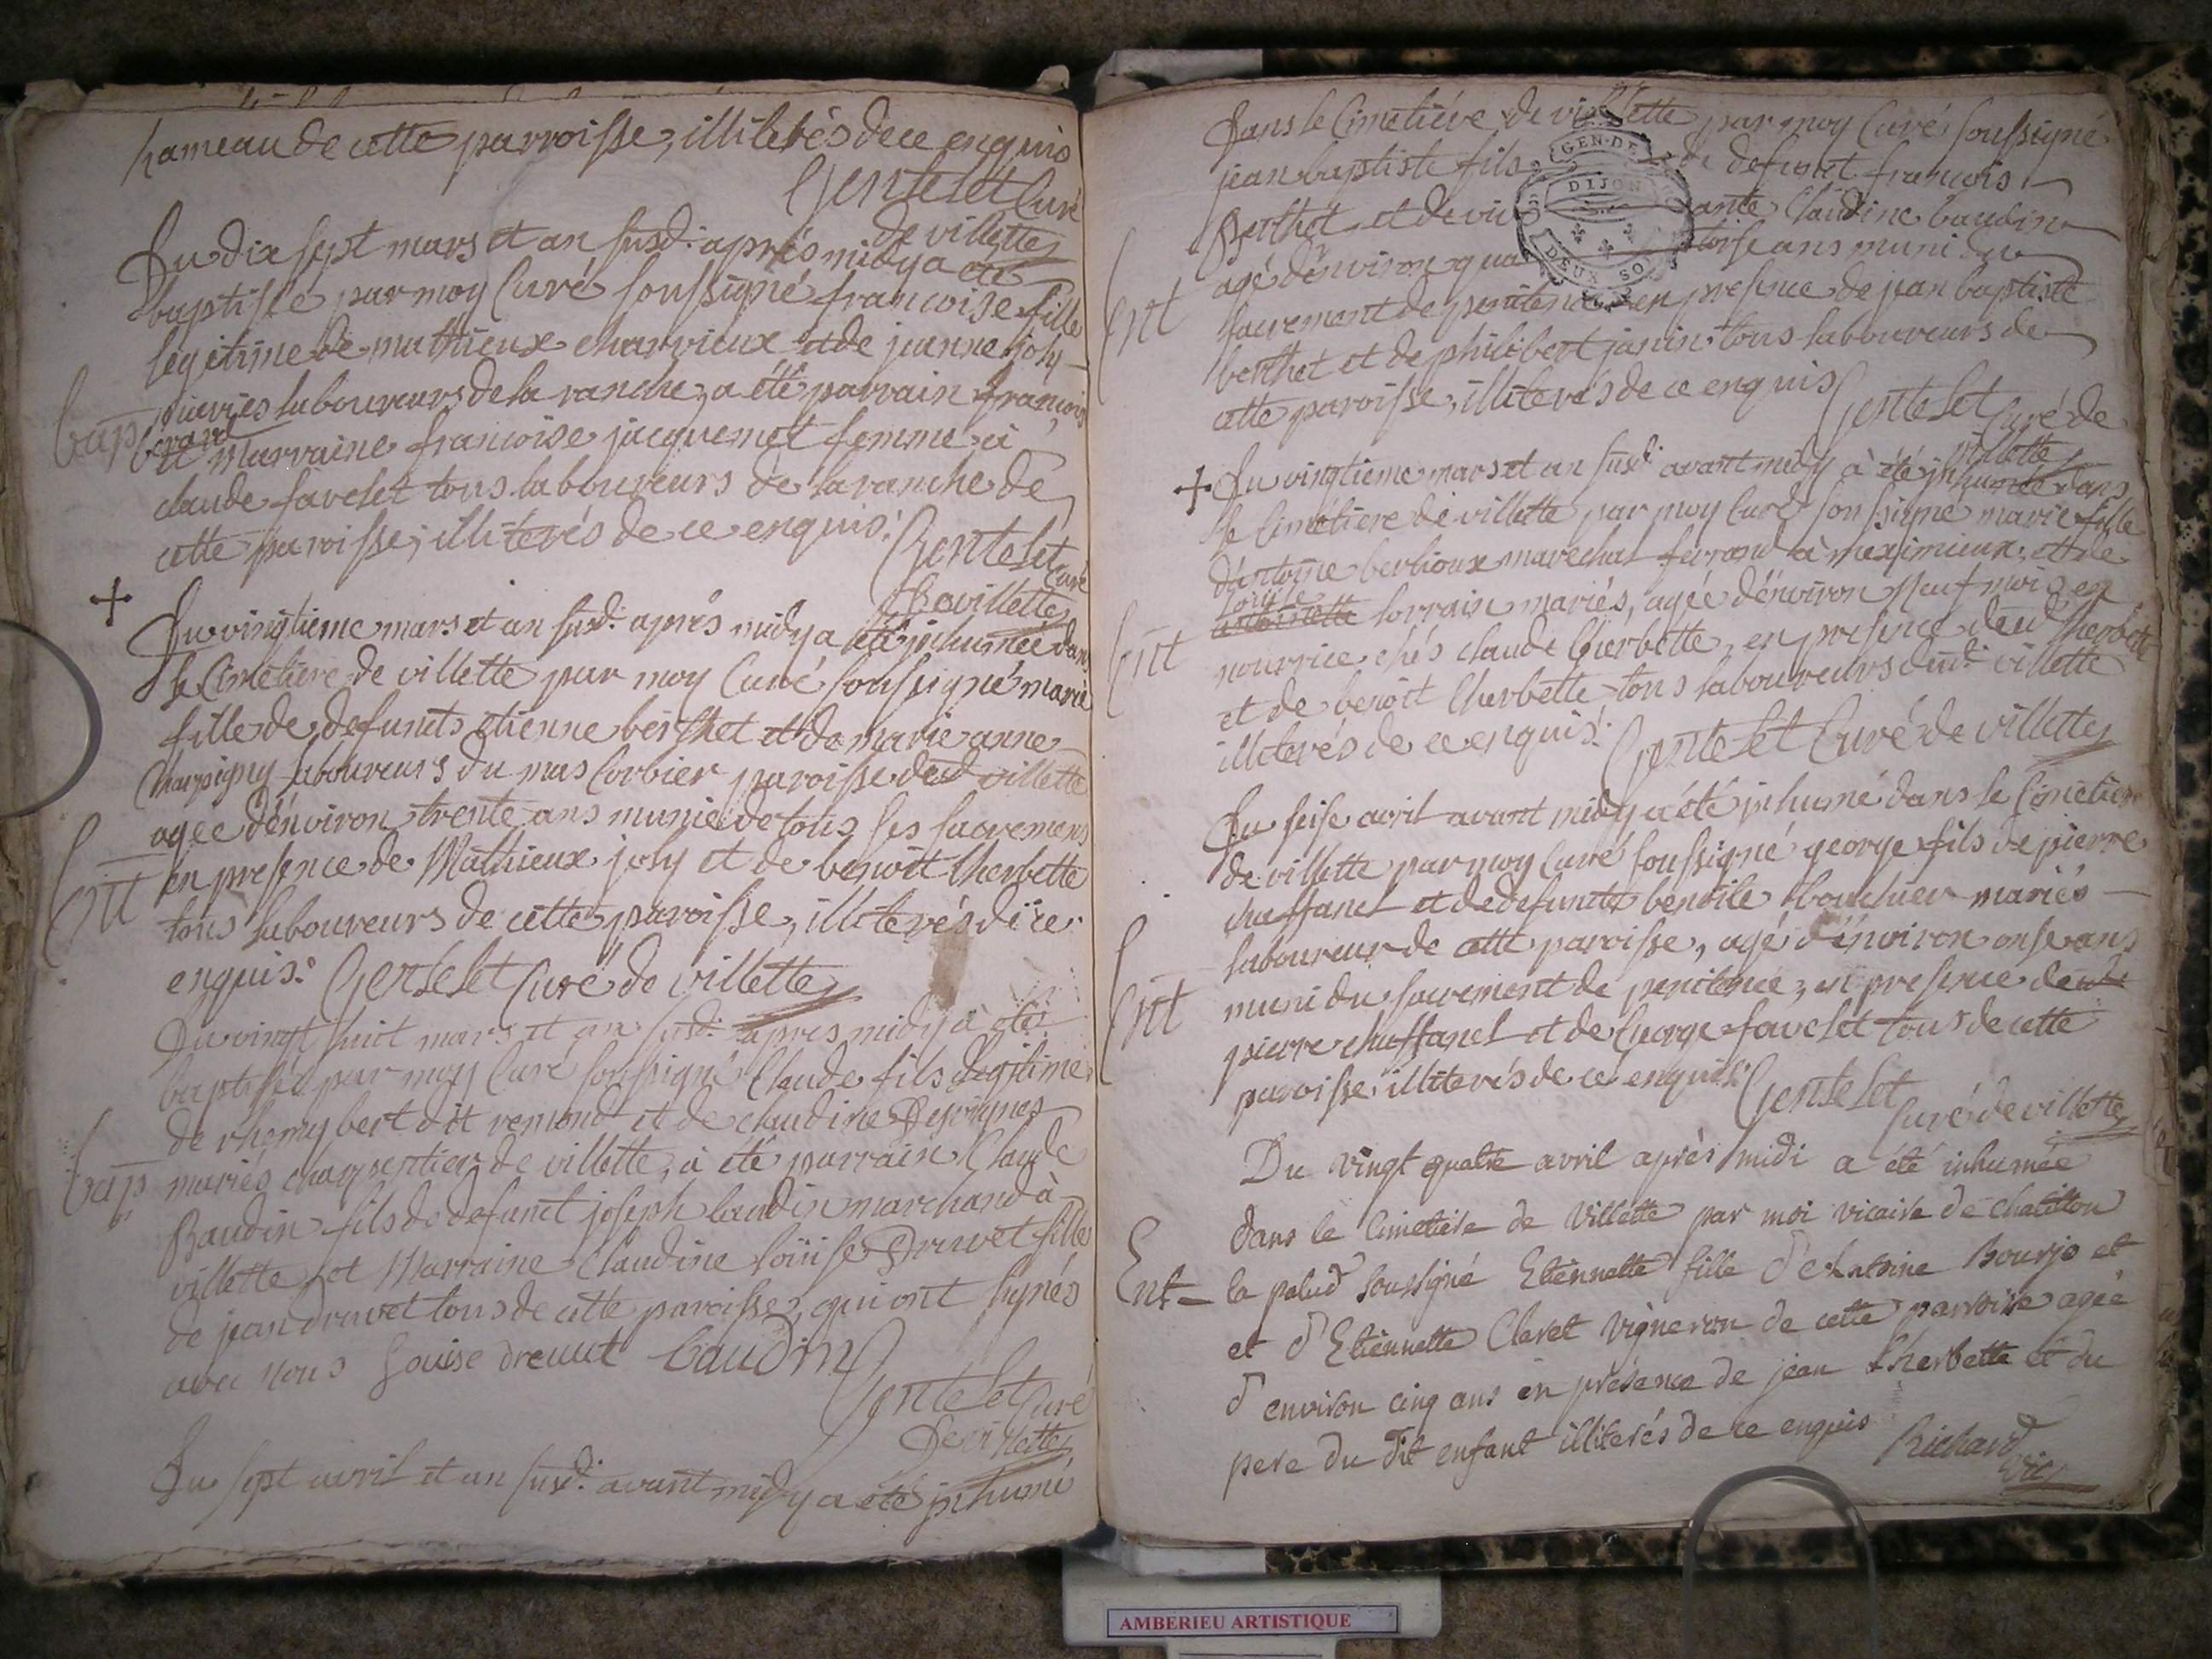 hameau de cette parroisse, illiterés de ce enquis
Gentelet Curé
de villette
Du dix sept mars et an susd: aprés midy a été
baptisée par moy Curé soussigné francoise fille
légitime de mathieux charvieux et de jeanne joly
mariés laboureurs de la ranche, a été parrain françois
bap berard
et Marraine francoise jacquemet femme à
claude favelet tous laboureurs de la ranche de
cette paroisse, illiterés de ce enquis: Gentelet
Curé
de villette
Du vingtieme mars et an susd: aprés midy a été inhumée dans
le Cimetiere de villette par moy Curé soussigné marie
fille de defunts etienne berthet et de marie anne
Charpigny laboureurs du mas Corbier paroisse dud villette
agée d'énviron trente ans munie de tous les sacremens
Ent en presence de Mathieux joly et de benoit lherbette
tous laboureurs de cette paroisse, illiterés de ce
enquis: Gentelet Curé de villette
Du vingt huit mars et an susd: apres midy à été
baptisé par moy Curé soussigné Claude fils légitime
de rhemy bert dit remond et de claudine Desvignes
bap mariés charpentier de villette, à été parrain Claude
Baudin fils de defunct joseph baudin marchand à
villette et Marraine Claudine loüise Druvet fille
de jean druvet tous de cette paroisse, qui ont signés
avec nous Louise dreuvet baudin
Gentelet Curé
de villette
Du sept avril et an susd: avant midy a été inhumé
Dans le Cimetiére de villette par moy Curé soussigné
GEN. DE
DIJON
DEUX SO
jean baptiste fils de defunct francois
Berthet et de vivante Claudine baudin
agé d'énviron quatorse ans muni du
Ent sacrement de penitence en presence de jean baptiste
berthet et de philibert janin tous laboureurs de
cette paroisse, illiterés de ce enquis Gentelet
Curé de
villette
Du vingtieme mars et an susd: avant midy à été inhumée dans
le Cimétiere de villette par moy Curé soussigné marie fille
d'antoine berlioux marechal ferrand à meximieux, et de
loüise
antoinette lorrain mariés, agée d'énviron neuf mois en
Ent nourrice chés claude lherbette, en presence dud lherbette
et de benoit lherbette tous laboureurs dud: villette
illiterés de ce enquis: Gentelet Curé de villette
Du seise avril avant midy a été inhumé dans le Cimetiere
de villette par moy Curé soussigné george fils de pierre
chaffanel et de defuncte benoite bouchuer mariés
laboureur de cette paroisse, agé d'énviron onse ans
Ent muni du sacrement de penitence, en presence dud:
pierre chaffanel et de George favelet tous de cette
paroisse illiterés de ce enquis: Gentelet
Curé de villette
Du vingt quatre avril après midi a été inhumée
dans le Cimetiere de Villette par moi vicaire de Chatillon
Ent la palud soussigné Etiennette fille d'Antoine Bourjo et
et d'Etiennette Claret vigneron de cette parroisse agée
d'environ cinq ans en présence de jean lherbette et du
pere du dit enfant illiterés de ce enquis
Richard
Vic
AMBERIEU ARTISTIQUE